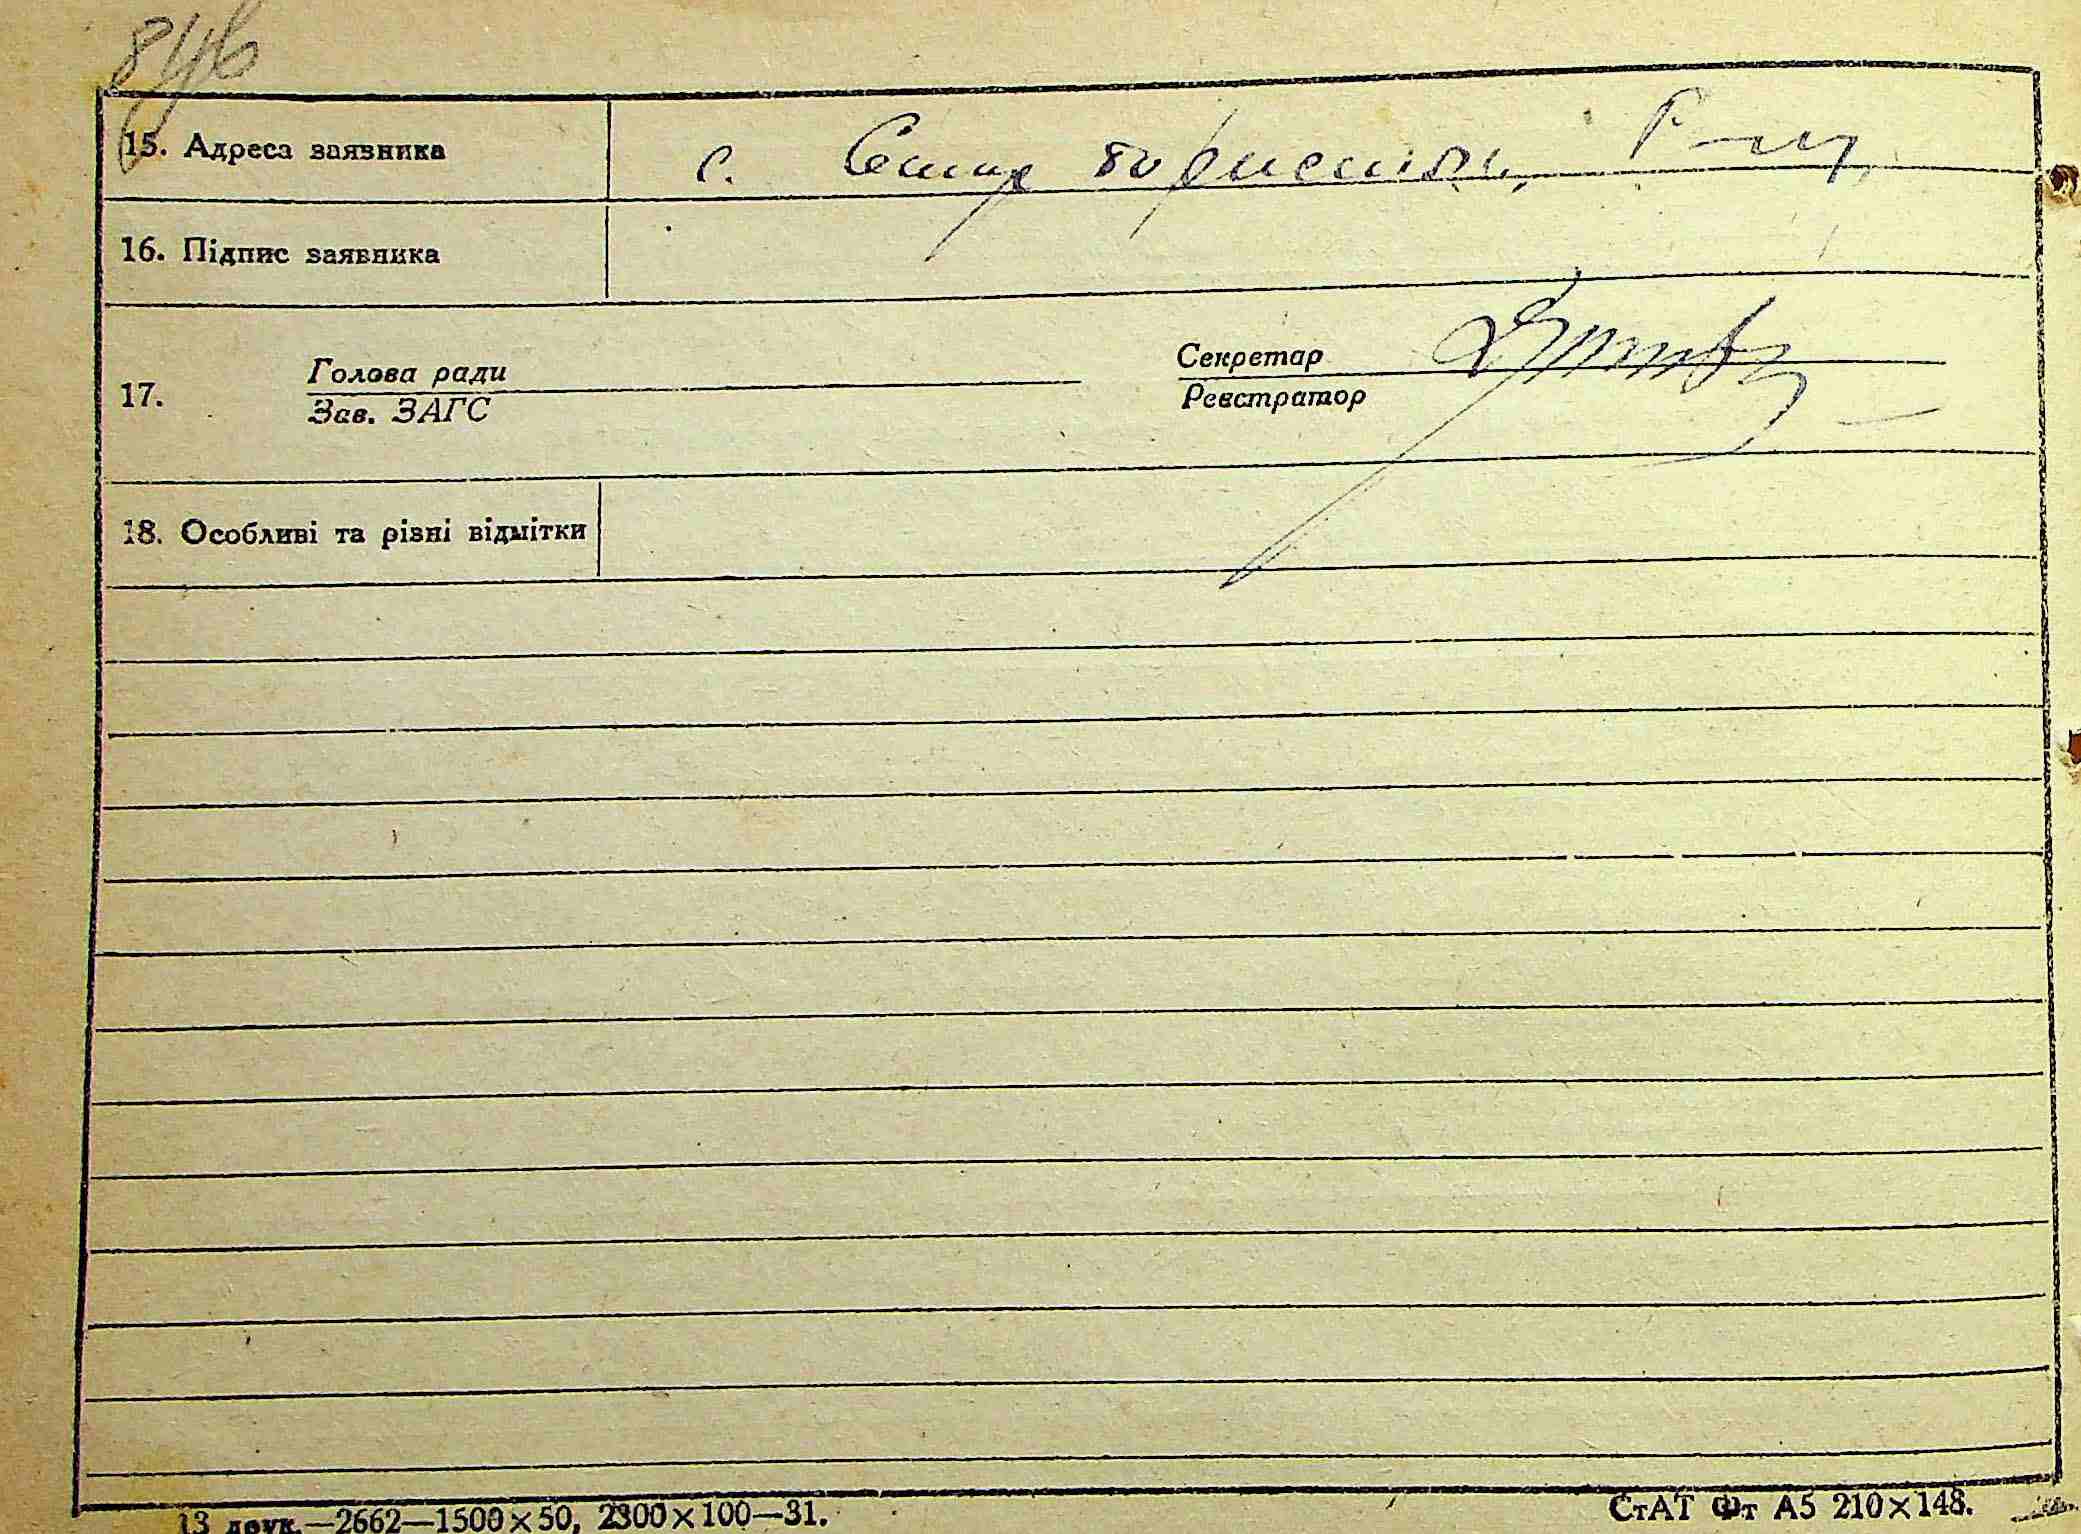 15. Адреса заявника с.
16. Підпис заявника
Голова ради Секретар
17.
Зав. ЗАГС Реєстратор
18. Особливі та різні відмітки
13 друк.—2662—1500×50, 2300×100—31. СтАТ Фт А5 210×148.